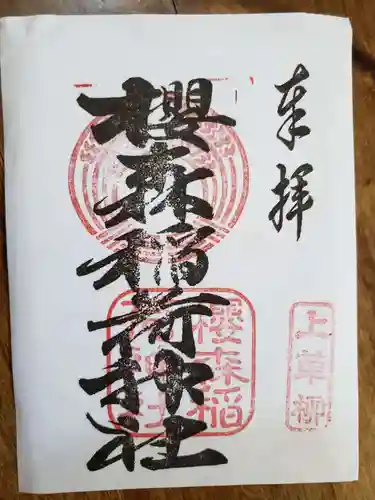 奉拝
櫻森稲荷神社
上草柳
櫻森稲
荷神社